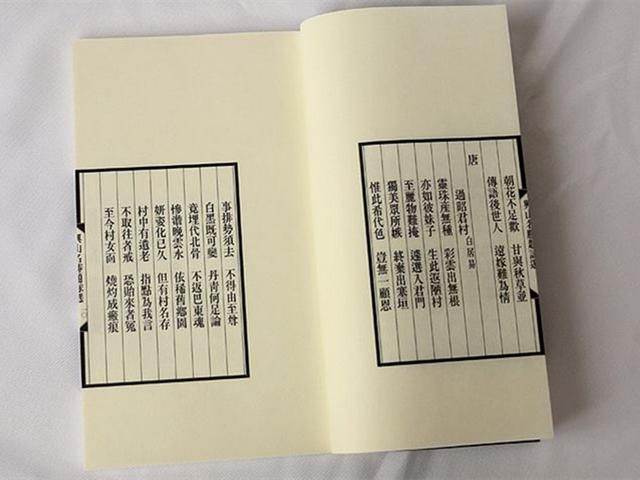 朝花不足歡　甘與秋草並
傳語後世人　遠嫁難為情
唐
過昭君村 白居易
靈珠產無種　彩雲出無根
亦如彼姝子　生此遐陋村
至麗物難掩　遽選入君門
獨美眾所嫉　終棄出塞垣
惟此希代色　豈無一顧恩
事排勢須去　不得由至尊
白黑既可變　丹青何足論
竟埋代北骨　不返巴東魂
慘澹晚雲水　依稀舊鄉園
妍姿化已久　但有村名存
村中有遺老　指點為我言
不取往者戒　恐貽來者冤
至今村女面　燒灼成瘢痕